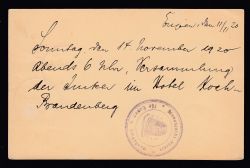 den 11/11 20
Sonntag den 14 November 1920
Abends 6 Uhr, Versammlung
der Imker im Hotel Hoch-
Brandenberg